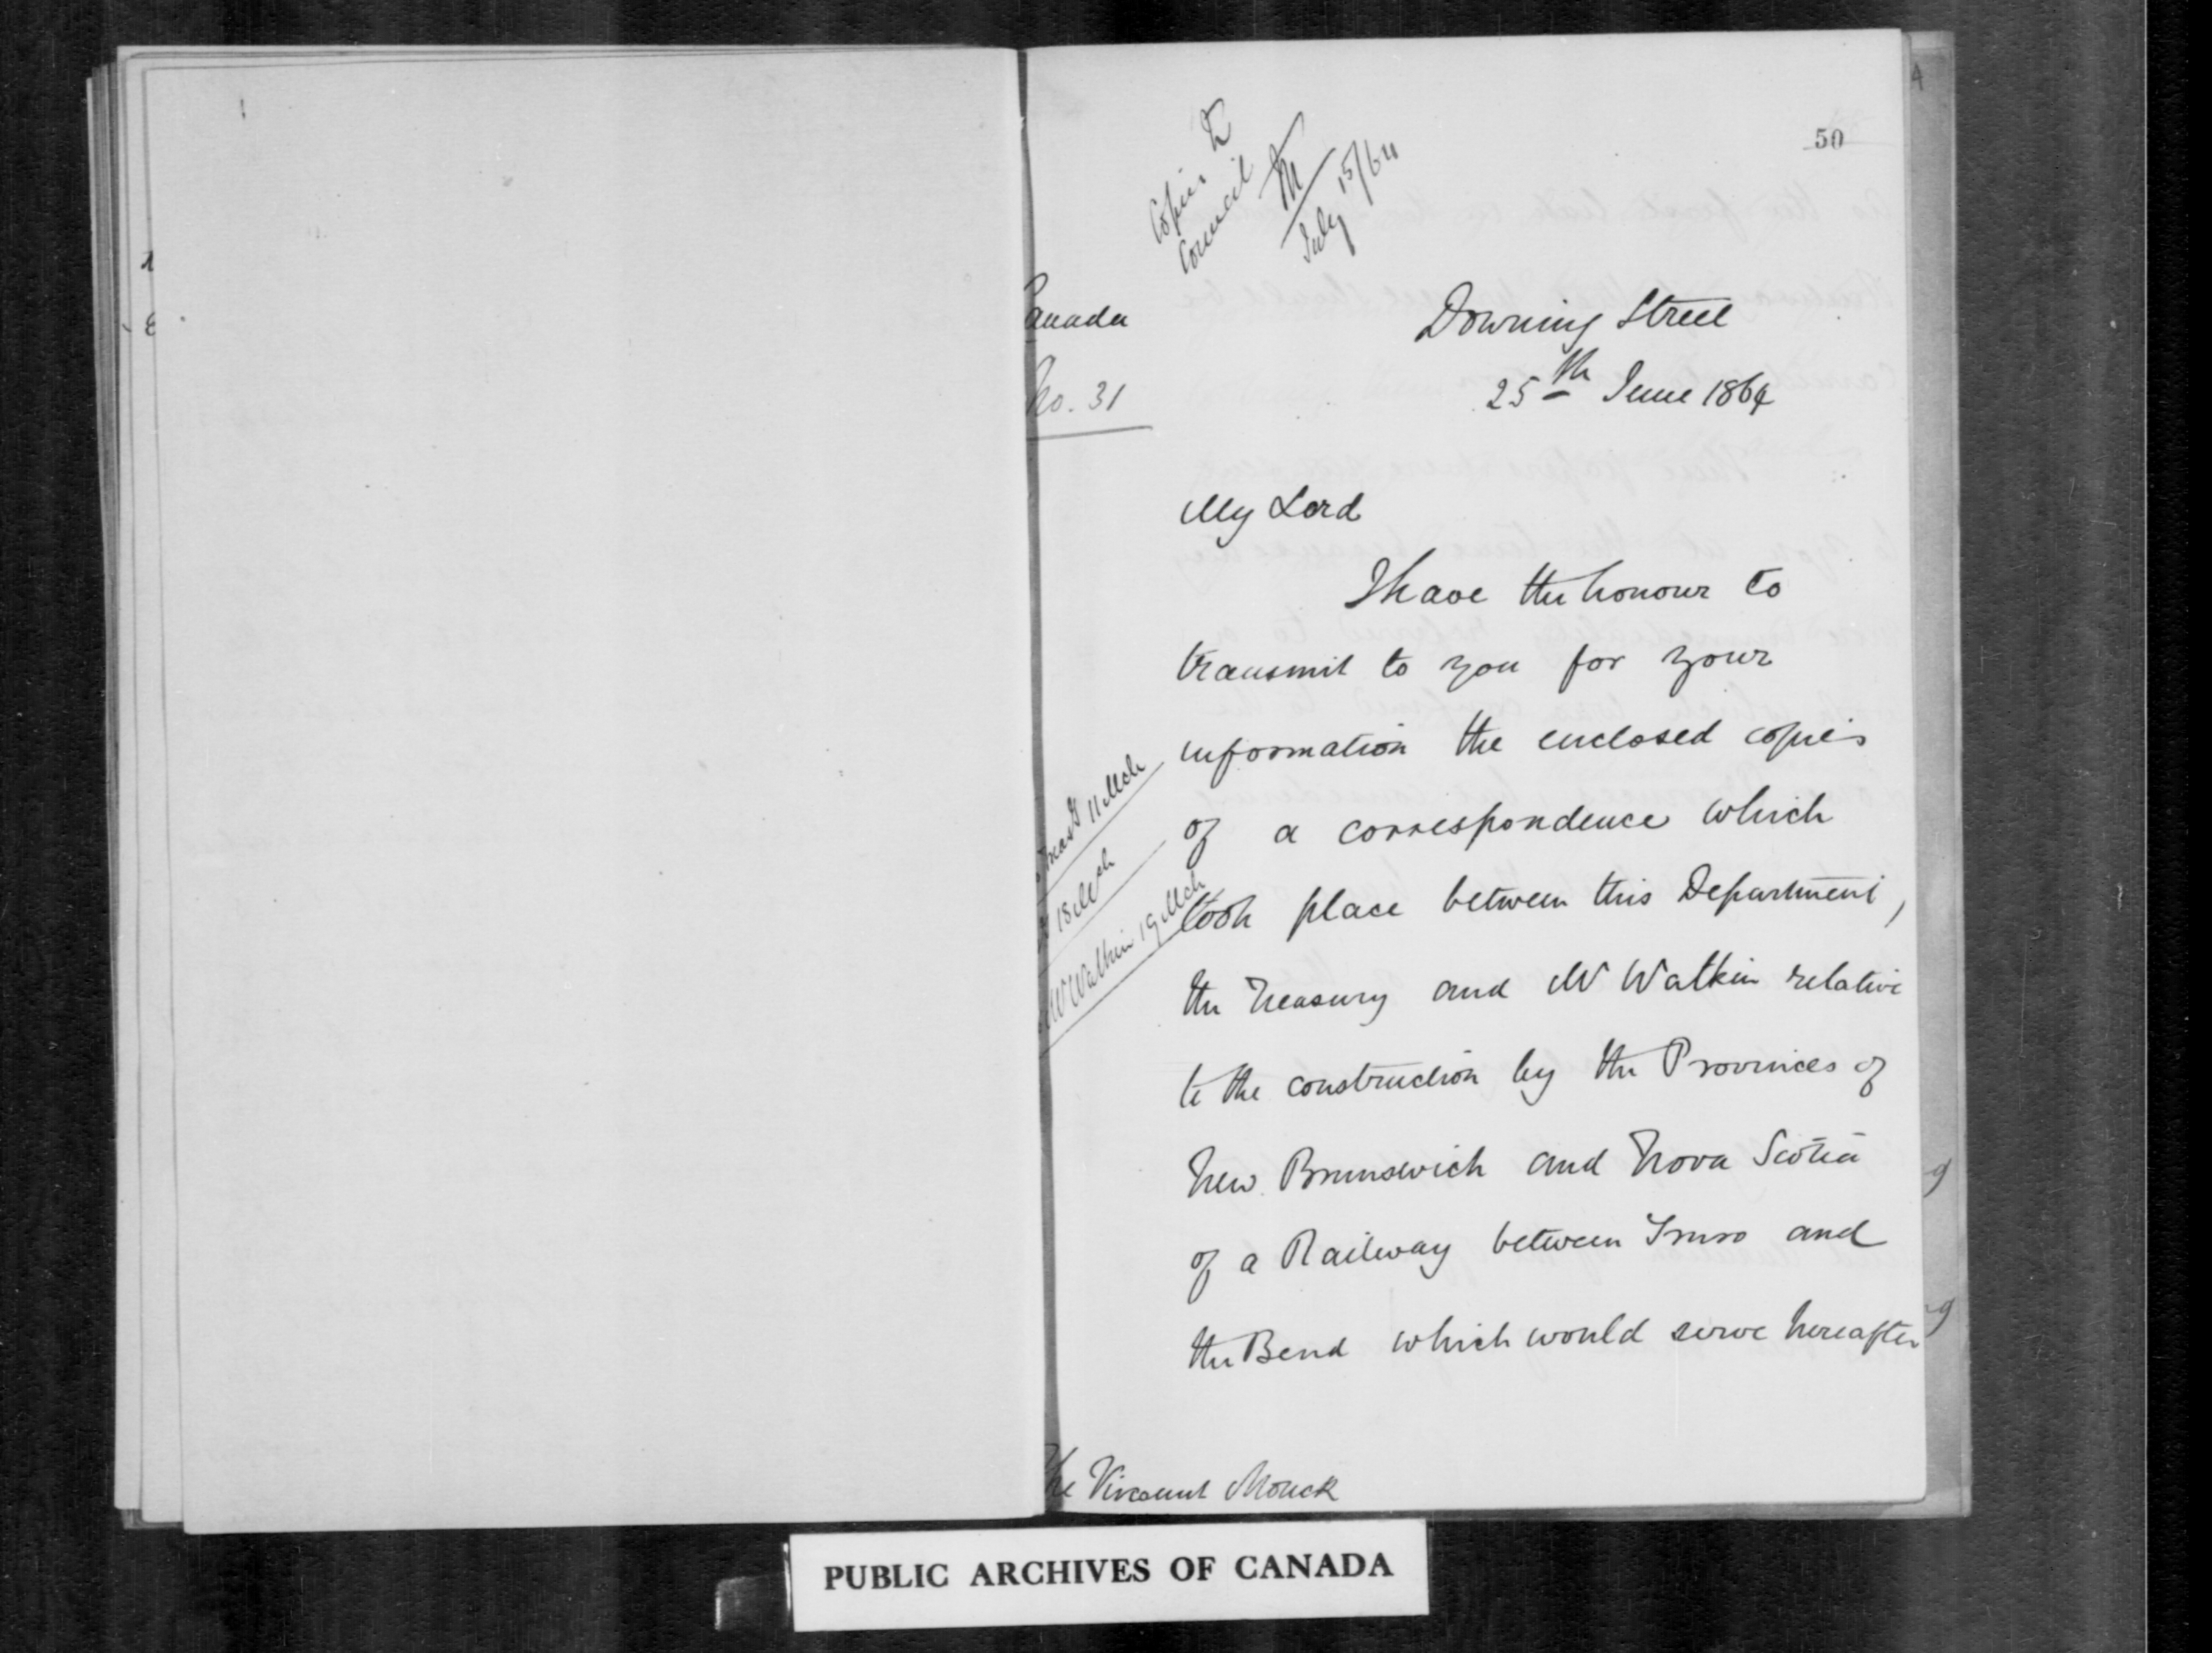 50
Copies to
Council
M
July 15/64
Canada
No. 31
Downing Street
25th June 1864
My Lord
I have the honour to
transmit to you for your
information the enclosed copies
of a correspondence which
took place between this Department,
the Treasury and Mr Watkin relative
to the construction by the Provinces of
New Brunswick and Nova Scotia
of a Railway between Truro and
the Bend which would serve hereafter
11 Mch
18 Mch
Mr Watkin 19 Mch
The Viscount Monck
PUBLIC ARCHIVES OF CANADA